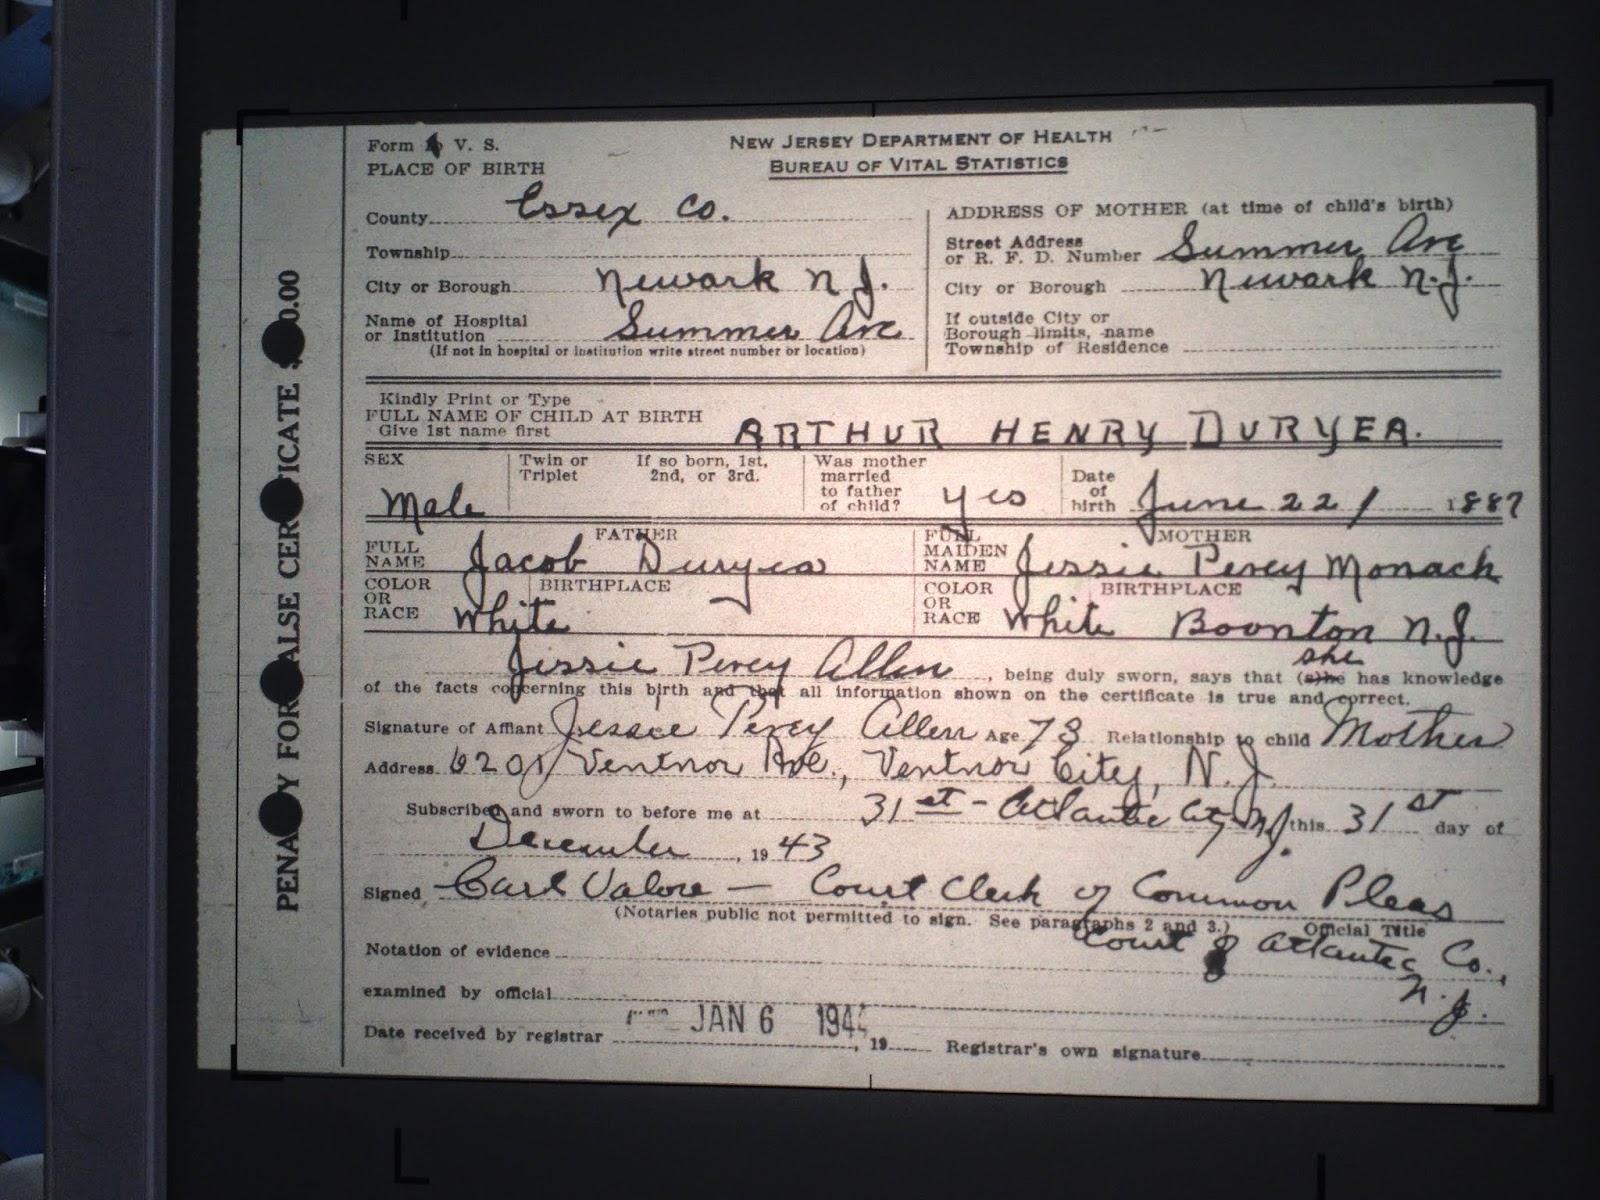 NEW JERSEY DEPARTMENT OF HEALTH
BUREAU OF VITAL STATISTICS
Form V. S.
PLACE OF BIRTH
County Essex Co.
Township
City or Borough Newark N J.
Name of Hospital
or Institution Summer Ave
(If not in hospital or institution write street number or location)
ADDRESS OF MOTHER (at time of child's birth)
Street Address
or R. F. D. Number Summer Ave
City or Borough Newark N.J.
If outside City or
Borough limits, name
Township of Residence
Kindly Print or Type
FULL NAME OF CHILD AT BIRTH
Give 1st name first ARTHUR HENRY DURYEA.
SEX Male
Twin or
Triplet
If so born, 1st,
2nd, or 3rd.
Was mother
married
to father
of child? Yes
Date
of
birth June 22 / 1887
FATHER
FULL
NAME Jacob Duryea
MOTHER
FULL
MAIDEN
NAME Jessie Percy Monack
COLOR
OR
RACE White
BIRTHPLACE
COLOR
OR
RACE White
BIRTHPLACE
Boonton N.J.
she
Jessie Percy Allen, being duly sworn, says that (s)he has knowledge
of the facts concerning this birth and that all information shown on the certificate is true and correct.
Signature of Affiant Jessie Percy Allen Age 73 Relationship to child Mother
Address 6201 Ventnor Ave., Ventnor City, N.J.
Subscribed and sworn to before me at 31st - Atlantic City N.J. this 31st day of
December, 19 43
Signed Carl Valore — Court Clerk of Common Pleas
(Notaries public not permitted to sign. See paragraphs 2 and 3.) Official Title
Court of Atlantic Co.,
N.J.
Notation of evidence
examined by official
Date received by registrar JAN 6 1944, 19
Registrar's own signature
PENA Y FOR ALSE CER ICATE 0.00